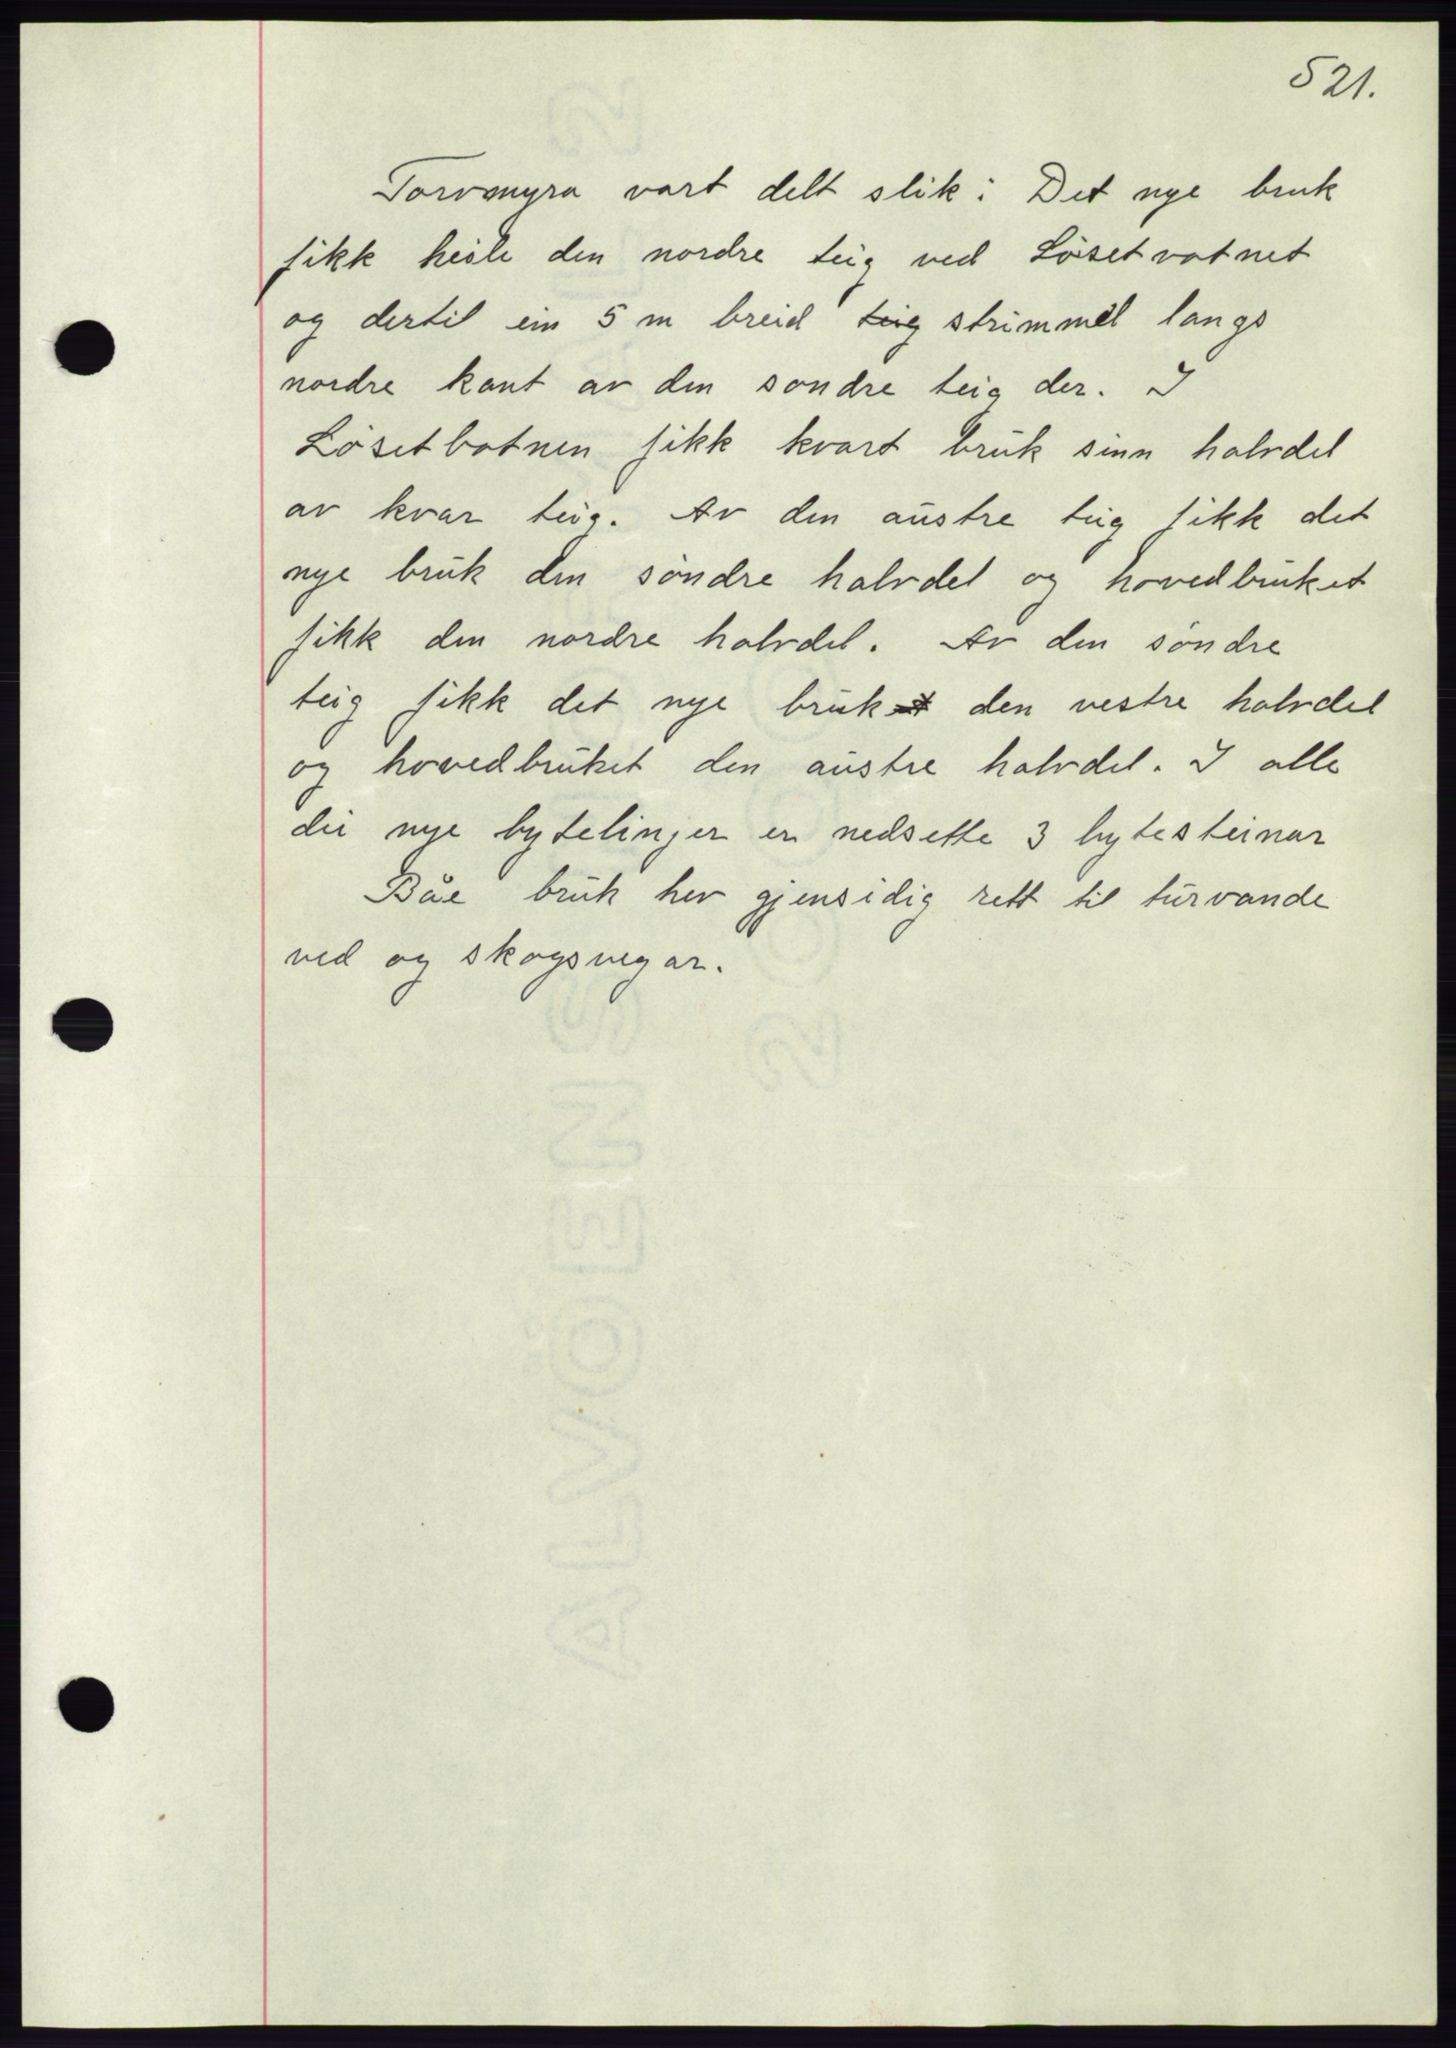 521.
Torvmyra vart delt slik: Det nye bruk
fikk heile den nordre teig ved Løsetvatnet
og dertil ein 5 m breid teig strimmel langs
nordre kant av den søndre teig der. I
Løsetbotnen fikk kvart bruk sinn halvdel
av kvar teig. Av den austre teig fikk det
nye bruk den søndre halvdel og hovedbruket
fikk den nordre halvdel. Av den søndre
teig fikk det nye bruket den vestre halvdel
og hovedbruket den austre halvdel. I alle
dei nye bytelinjer er nedsette 3 bytesteinar
Båe bruk hev gjensidig rett til turvande
ved og skogsvegar.
ALVØENS